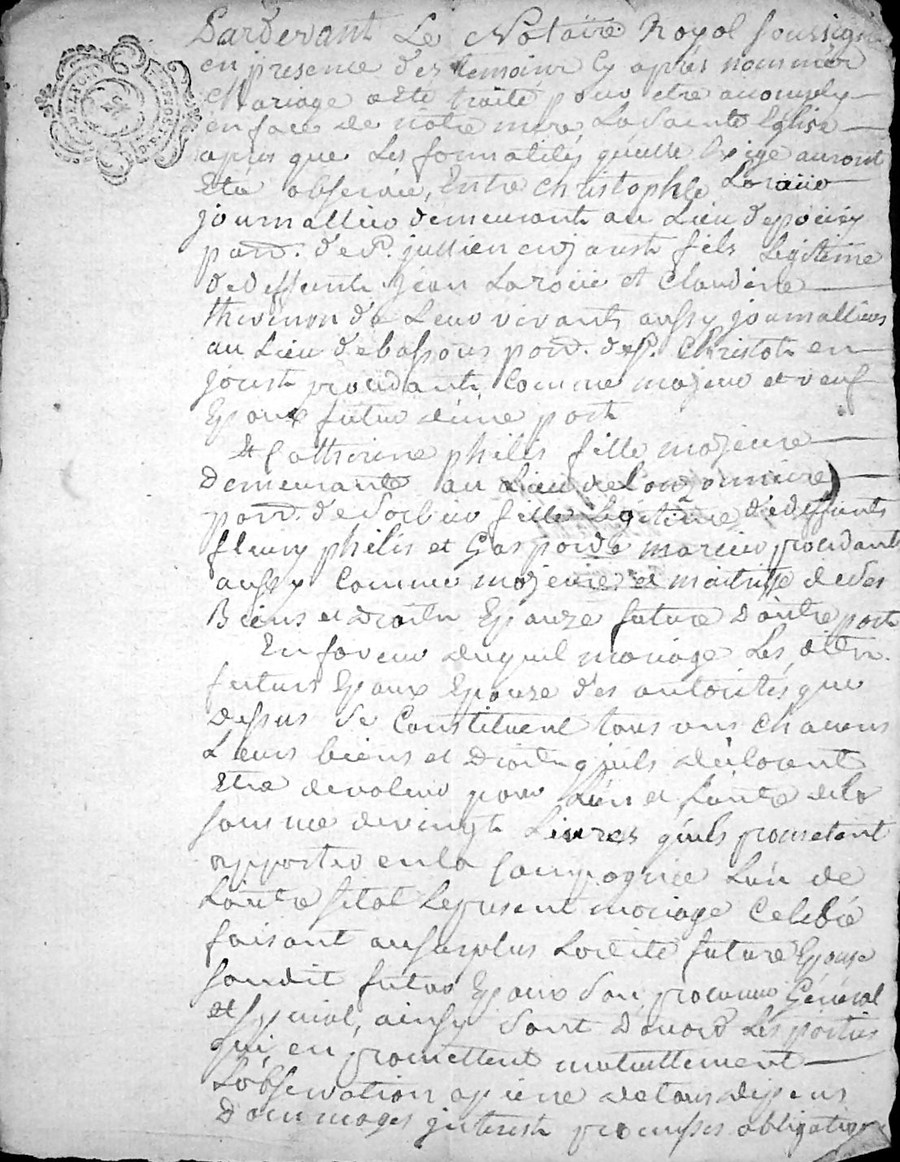 Pardevant Le Notaire Royal soussigné
en presence des temoins cy après nommés
Mariage a été traité pour etre accomply
en face de notre mere La Sainte Eglise
après que Les formalités quelle Exige auront
Eté observée, Entre Christophle Laroüe
journallier demeurant au Lieu de
parr. de St. jullien en jarest fils Legitime
de deffunts Jean Laroüe et Claudine
thevenon de Leur vivants aussy journalliers
au Lieu de bassous parr. de St. Christoh en
jarest procedant Comme majeur et veuf
Epoux futur d'une part
Et Catherine philis fille majeure
demeurante au Lieu de
parr. de Sorbier fille Legitime de deffunts
fleury philis et Gasparde procedant
aussy Comme majeure et maitresse de ses
Biens et droits Epouze future D'autre part
En faveur duquel mariage Les dits
futurs Epoux Epouze des autorités que
dessus se Constituent tous uns chacuns
Leurs biens et Droits quils déclarent
Etre de valeur pour Lun et Lautre de la
somme de vingt Livres quils promettent
apporter en la Compagnie Lun de
Lautre sitot Le present mariage Celebré
faisant au surplus Ladite future Epouze
sondit futur Epoux son procureur Général
et special, ainsy sont D'accord Les parties
qui en promettent mutuellement
L'observation a peine de tous depens
Dommages interest promesses obligations